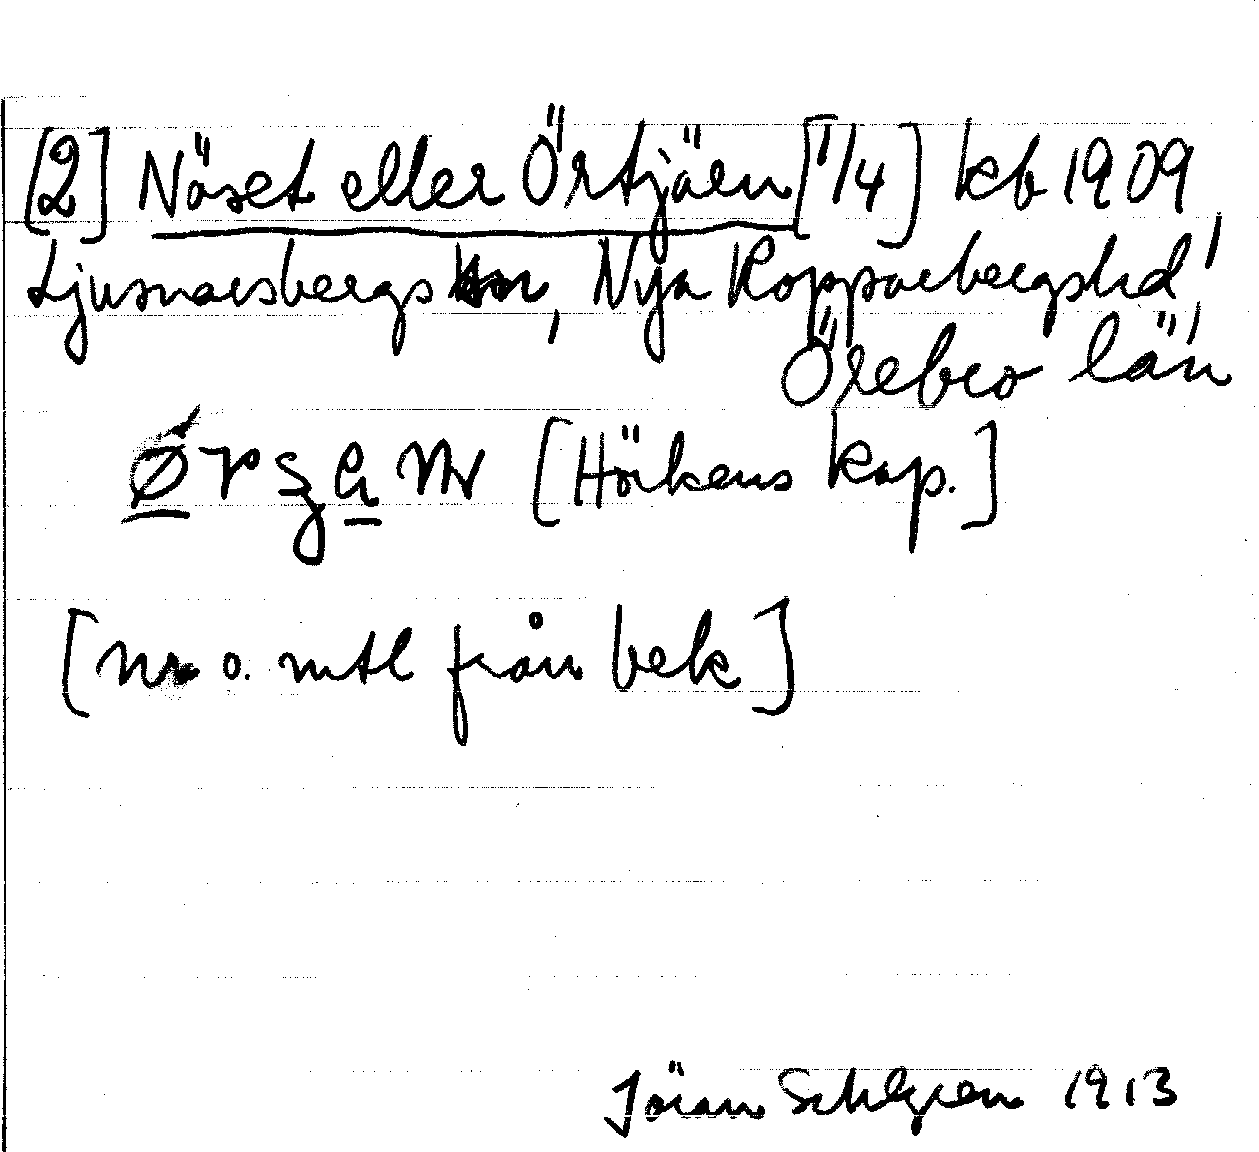 [2] Näset eller Örtjäen [1/4] kb 1909
Ljusnarsbergs sn, Nya Kopparbergs hd,
Örebro län
[Hörkens kap.]
[nr o. mtl från bek]
Jöran Sahlgren 1913